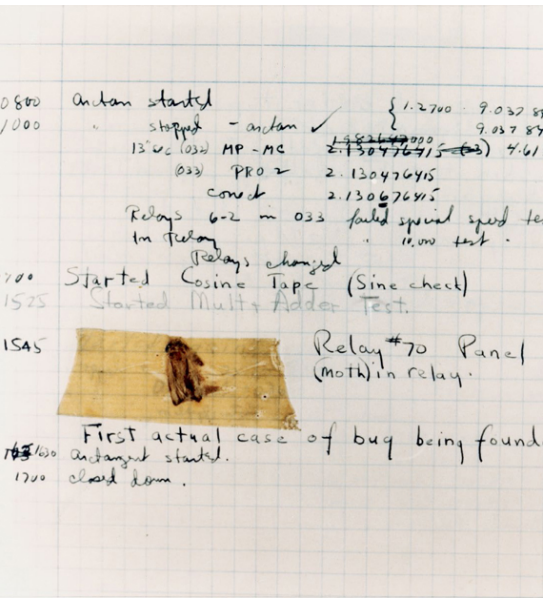 0800 arctan started { 1.2700 9.037 8
1000 " stopped - arctan ✓ 9.037 84
13"uc (032) MP-MC 2.130476415 4.61
(033) PRO 2 2.130476415
conect 2.130676415
Relays 6-2 in 033 failed special speed te
In Relay " 10,000 test.
Relays changed
700 Started Cosine Tape (Sine check)
1525 Started Mult + Adder Test.
1545 Relay #70 Panel
(moth) in relay.
First actual case of bug being found
1630 arctangent started.
1700 closed down.